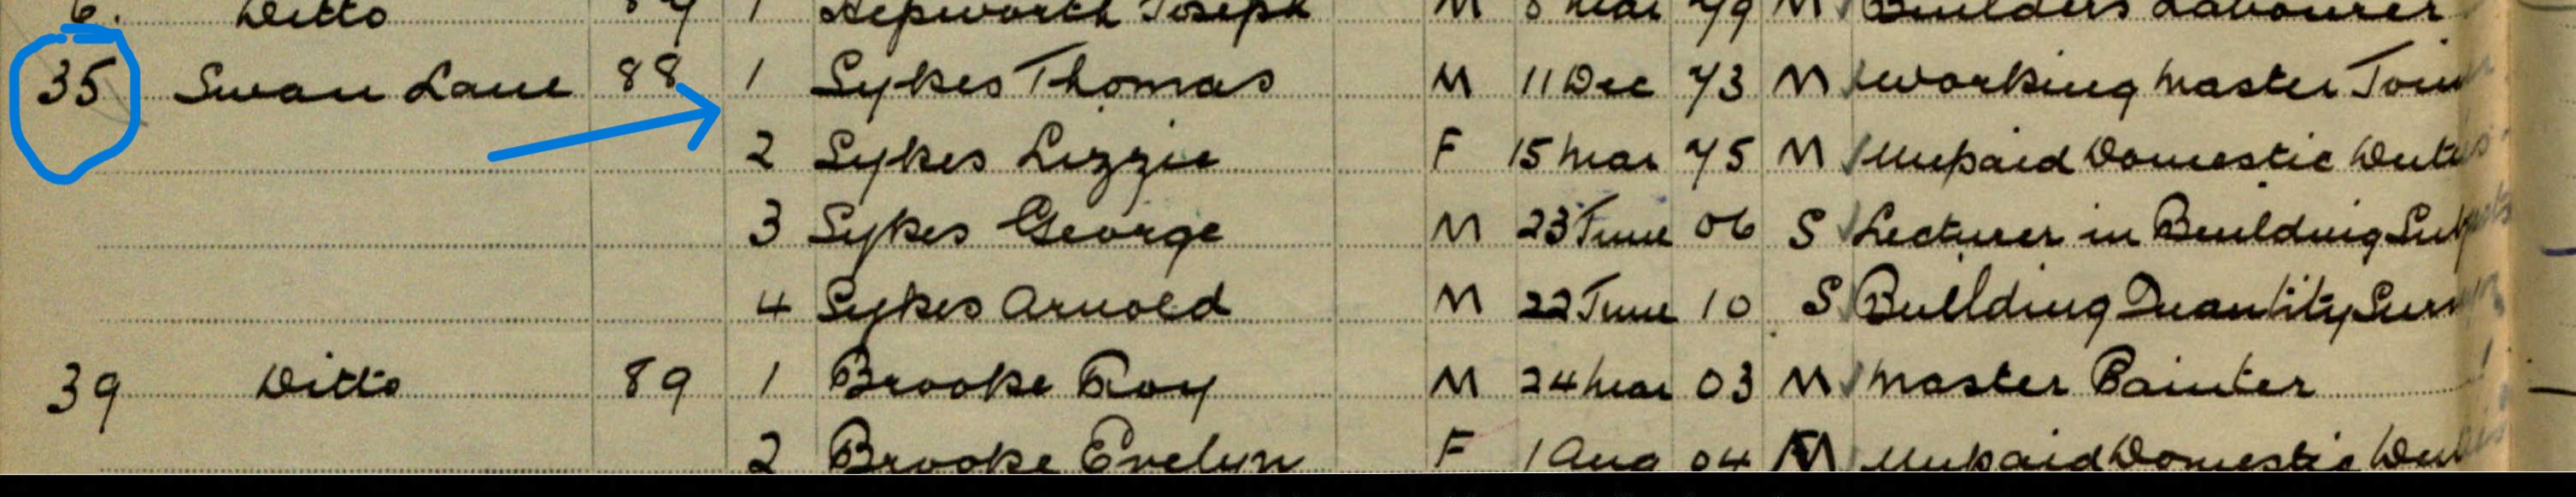 6. Ditto 1 Hepworth Joseph M 8 Mar 79 M Builders Labourer
35 Swan Lane 88 1 Sykes Thomas M 11 Dec 73 M Working Master
2 Sykes Lizzie F 15 Mar 75 M Unpaid Domestic Duties
3 Sykes George M 23 June 06 S Lecturer in Building
4 Sykes Arnold M 22 June 10 S Building Quantity
39 Ditto 89 1 Brooke Roy M 24 Mar 03 M Master Painter
2 Brooke Evelyn F 1 Aug 04 M Unpaid Domestic